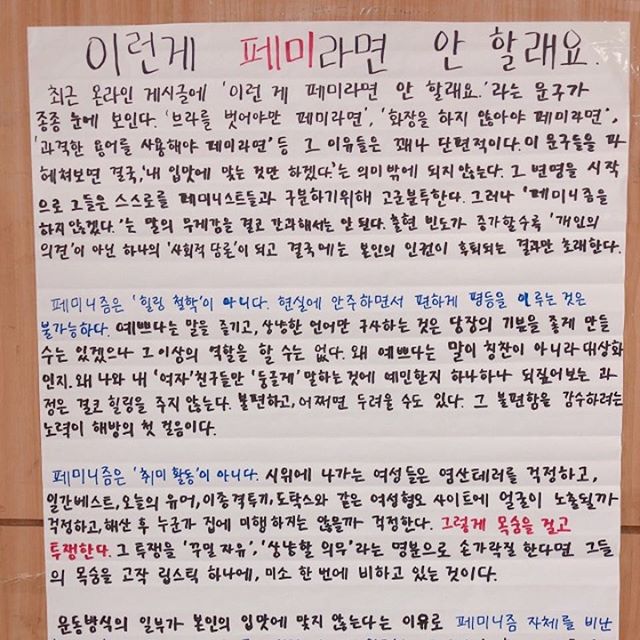 이런게 페미라면 안 할래요.
최근 온라인 게시글에 '이런 게 페미라면 안 할래요.'라는 문구가
종종 눈에 보인다. '브라를 벗어야만 페미라면', '화장을 하지 않아야 페미라면',
'과격한 용어를 사용해야 페미라면' 등 그 이유들은 꽤나 단편적이다. 이 문구들을 파
헤쳐보면 결국, '내 입맛에 맞는 것만 하겠다.'는 의미 밖에 되지 않는다. 그 변명을 시작
으로 그들은 스스로를 페미니스트들과 구분하기위해 고군분투한다. 그러나 '페미니즘을
하지 않겠다.'는 말의 무게감을 결코 간과해서는 안 된다. 출현 빈도가 증가할수록 '개인의
의견'이 아닌 하나의 '사회적 담론'이 되고 결국에는 본인의 인권이 후퇴되는 결과만 초래한다.
페미니즘은 '힐링 철학'이 아니다. 현실에 안주하면서 편하게 평등을 이루는 것은
불가능하다. 예쁘다는 말을 즐기고, 상냥한 언어만 구사하는 것은 당장의 기분을 좋게 만들
수는 있겠으나 그 이상의 역할을 할 수는 없다. 왜 예쁘다는 말이 칭찬이 아니라 대상화
인지. 왜 나와 내 '여자'친구들만 '둥글게' 말하는것에 예민한지 하나하나 되짚어보는 과
정은 결코 힐링을 주지 않는다. 불편하고, 어쩌면 두려울 수도 있다. 그 불편함을 감수하려는
노력이 해방의 첫 걸음이다.
페미니즘은 '취미 활동'이 아니다. 시위에 나가는 여성들은 염산테러를 걱정하고,
일간베스트, 오늘의 유머, 이종격투기, 도탁스와 같은 여성혐오 사이트에 얼굴이 노출될까
걱정하고, 해산 후 누군가 집에 미행하지는 않을까 걱정한다. 그렇게 목숨을 걸고
투쟁한다. 그 투쟁을 '꾸밀 자유', '상냥할 의무'라는 명분으로 손가락질 한다면 그들
의 목숨을 고작 립스틱 하나에, 미소 한 번에 비하고 있는 것이다.
운동방식의 일부가 본인의 입맛에 맞지 않는다는 이유로 페미니즘 자체를 비난